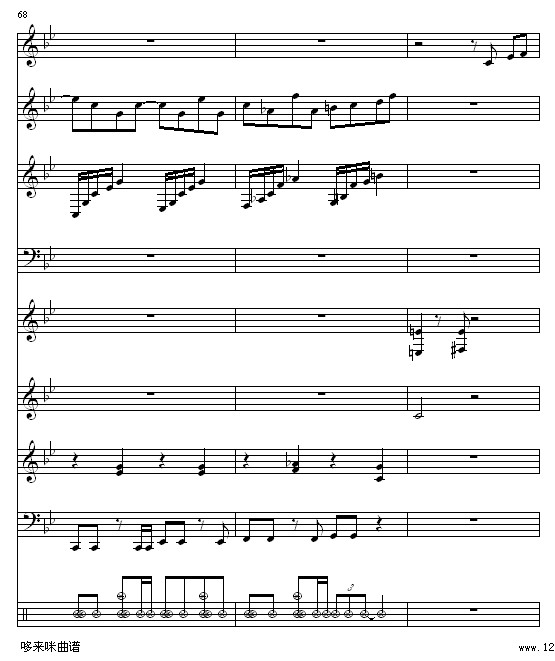 68
哆来咪曲谱
www.12